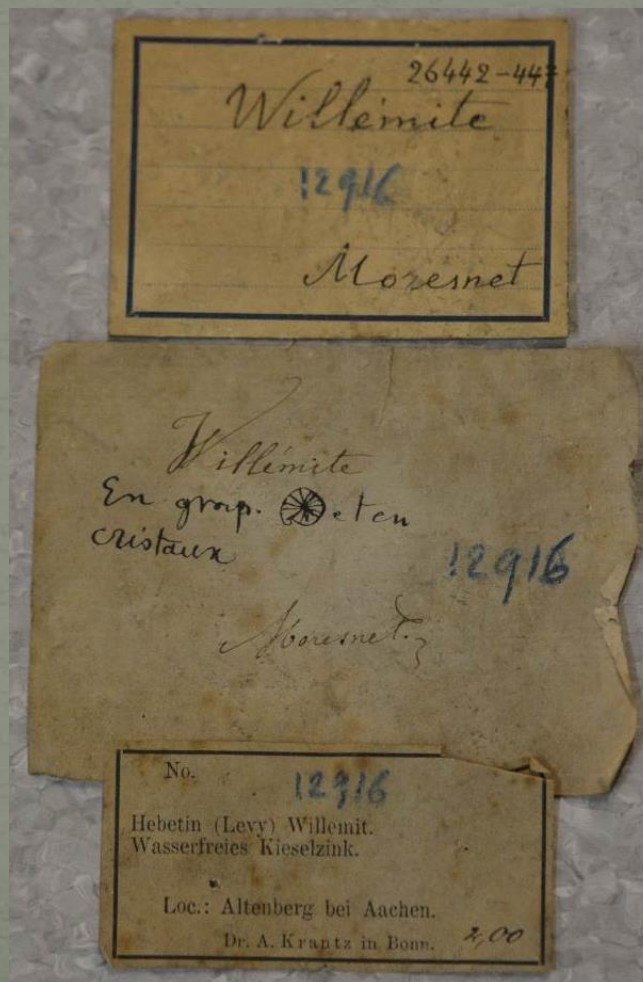 26442-447
Willémite
12916
Moresnet
Willémite
En group. et en
cristaux
12916
Moresnet.
No.
12916
Hebetin (Levy) Willemit.
Wasserfreies Kieselzink.
Loc.: Altenberg bei Aachen.
Dr. A. Krantz in Bonn. 2,00